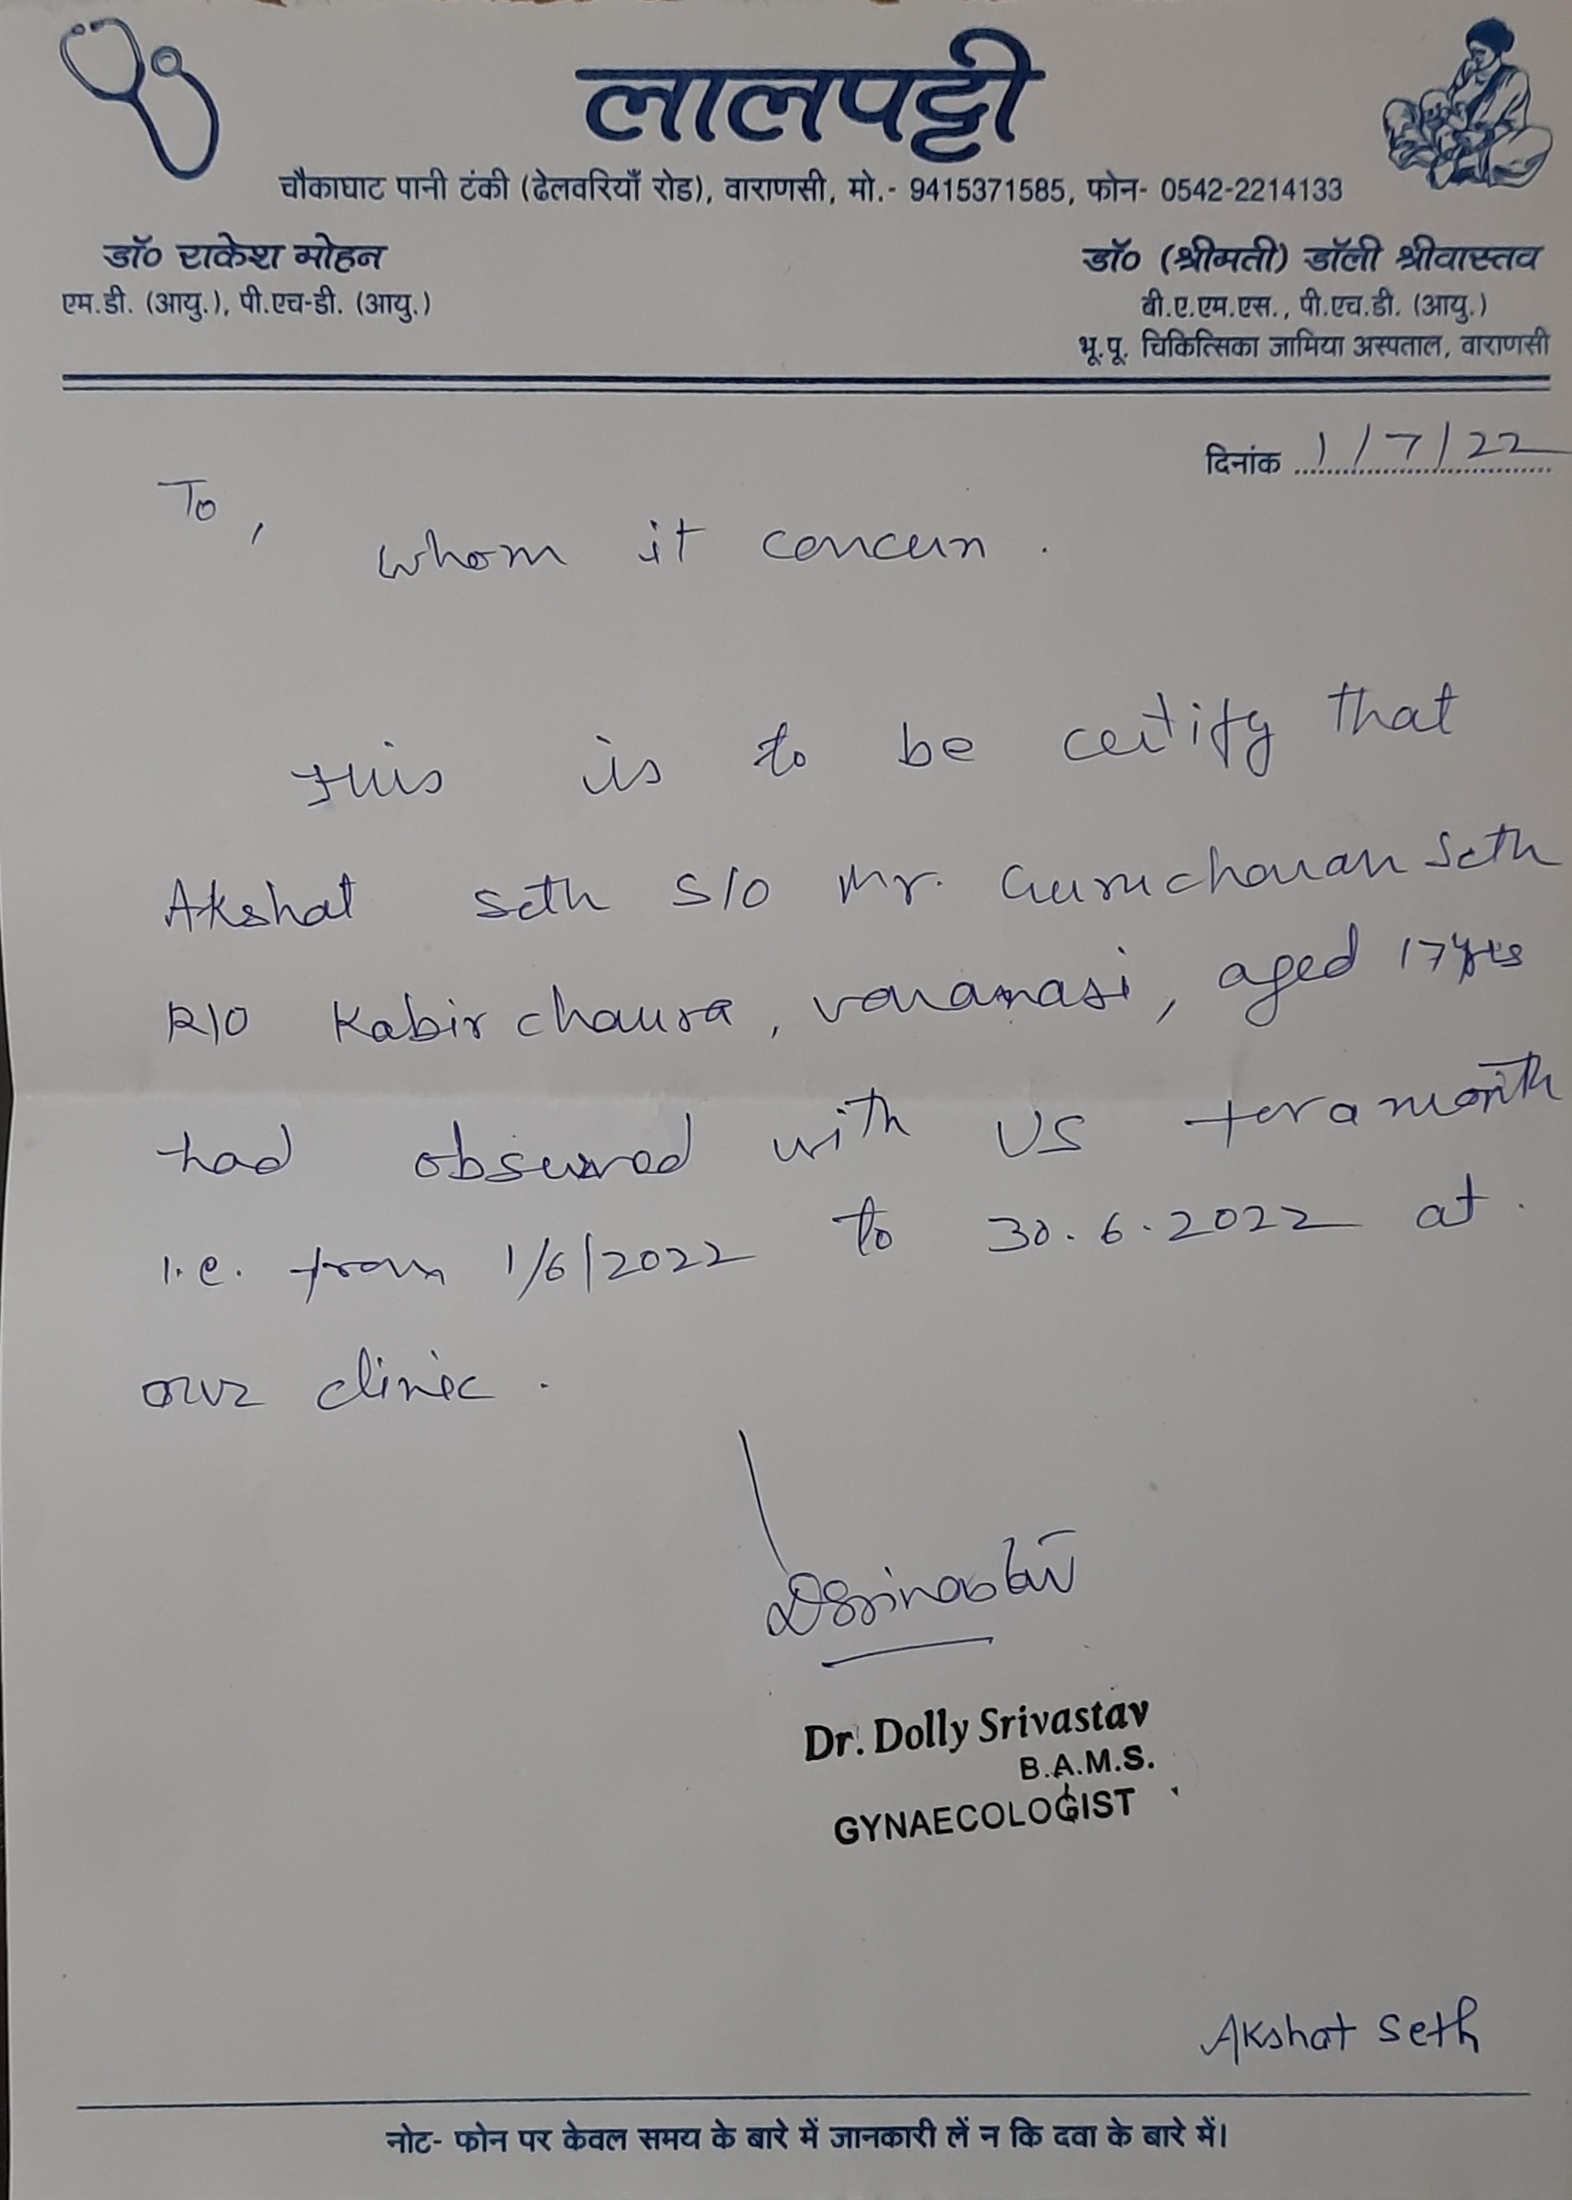 लालपट्टी
चौकाघाट पानी टंकी (ढेलवरियाँ रोड), वाराणसी, मो.- 9415371585, फोन- 0542-2214133
डॉ० राकेश मोहन
एम.डी. (आयु.), पी.एच-डी. (आयु.)
डॉ० (श्रीमती) डॉली श्रीवास्तव
बी.ए.एम.एस., पी.एच.डी. (आयु.)
भू.पू. चिकित्सिका जामिया अस्पताल, वाराणसी
दिनांक 1/7/22
To,
whom it concern.
This is to be certify that
Akshat Seth S/O Mr. Gurucharan Seth
R/O Kabir chaura, varanasi, aged 17yrs
had observed with US for a month
i.e. from 1/6/2022 to 30.6.2022 at
our clinic.
DSrivastav
Dr. Dolly Srivastav
B.A.M.S.
GYNAECOLOGIST
Akshat Seth
नोट- फोन पर केवल समय के बारे में जानकारी लें न कि दवा के बारे में।